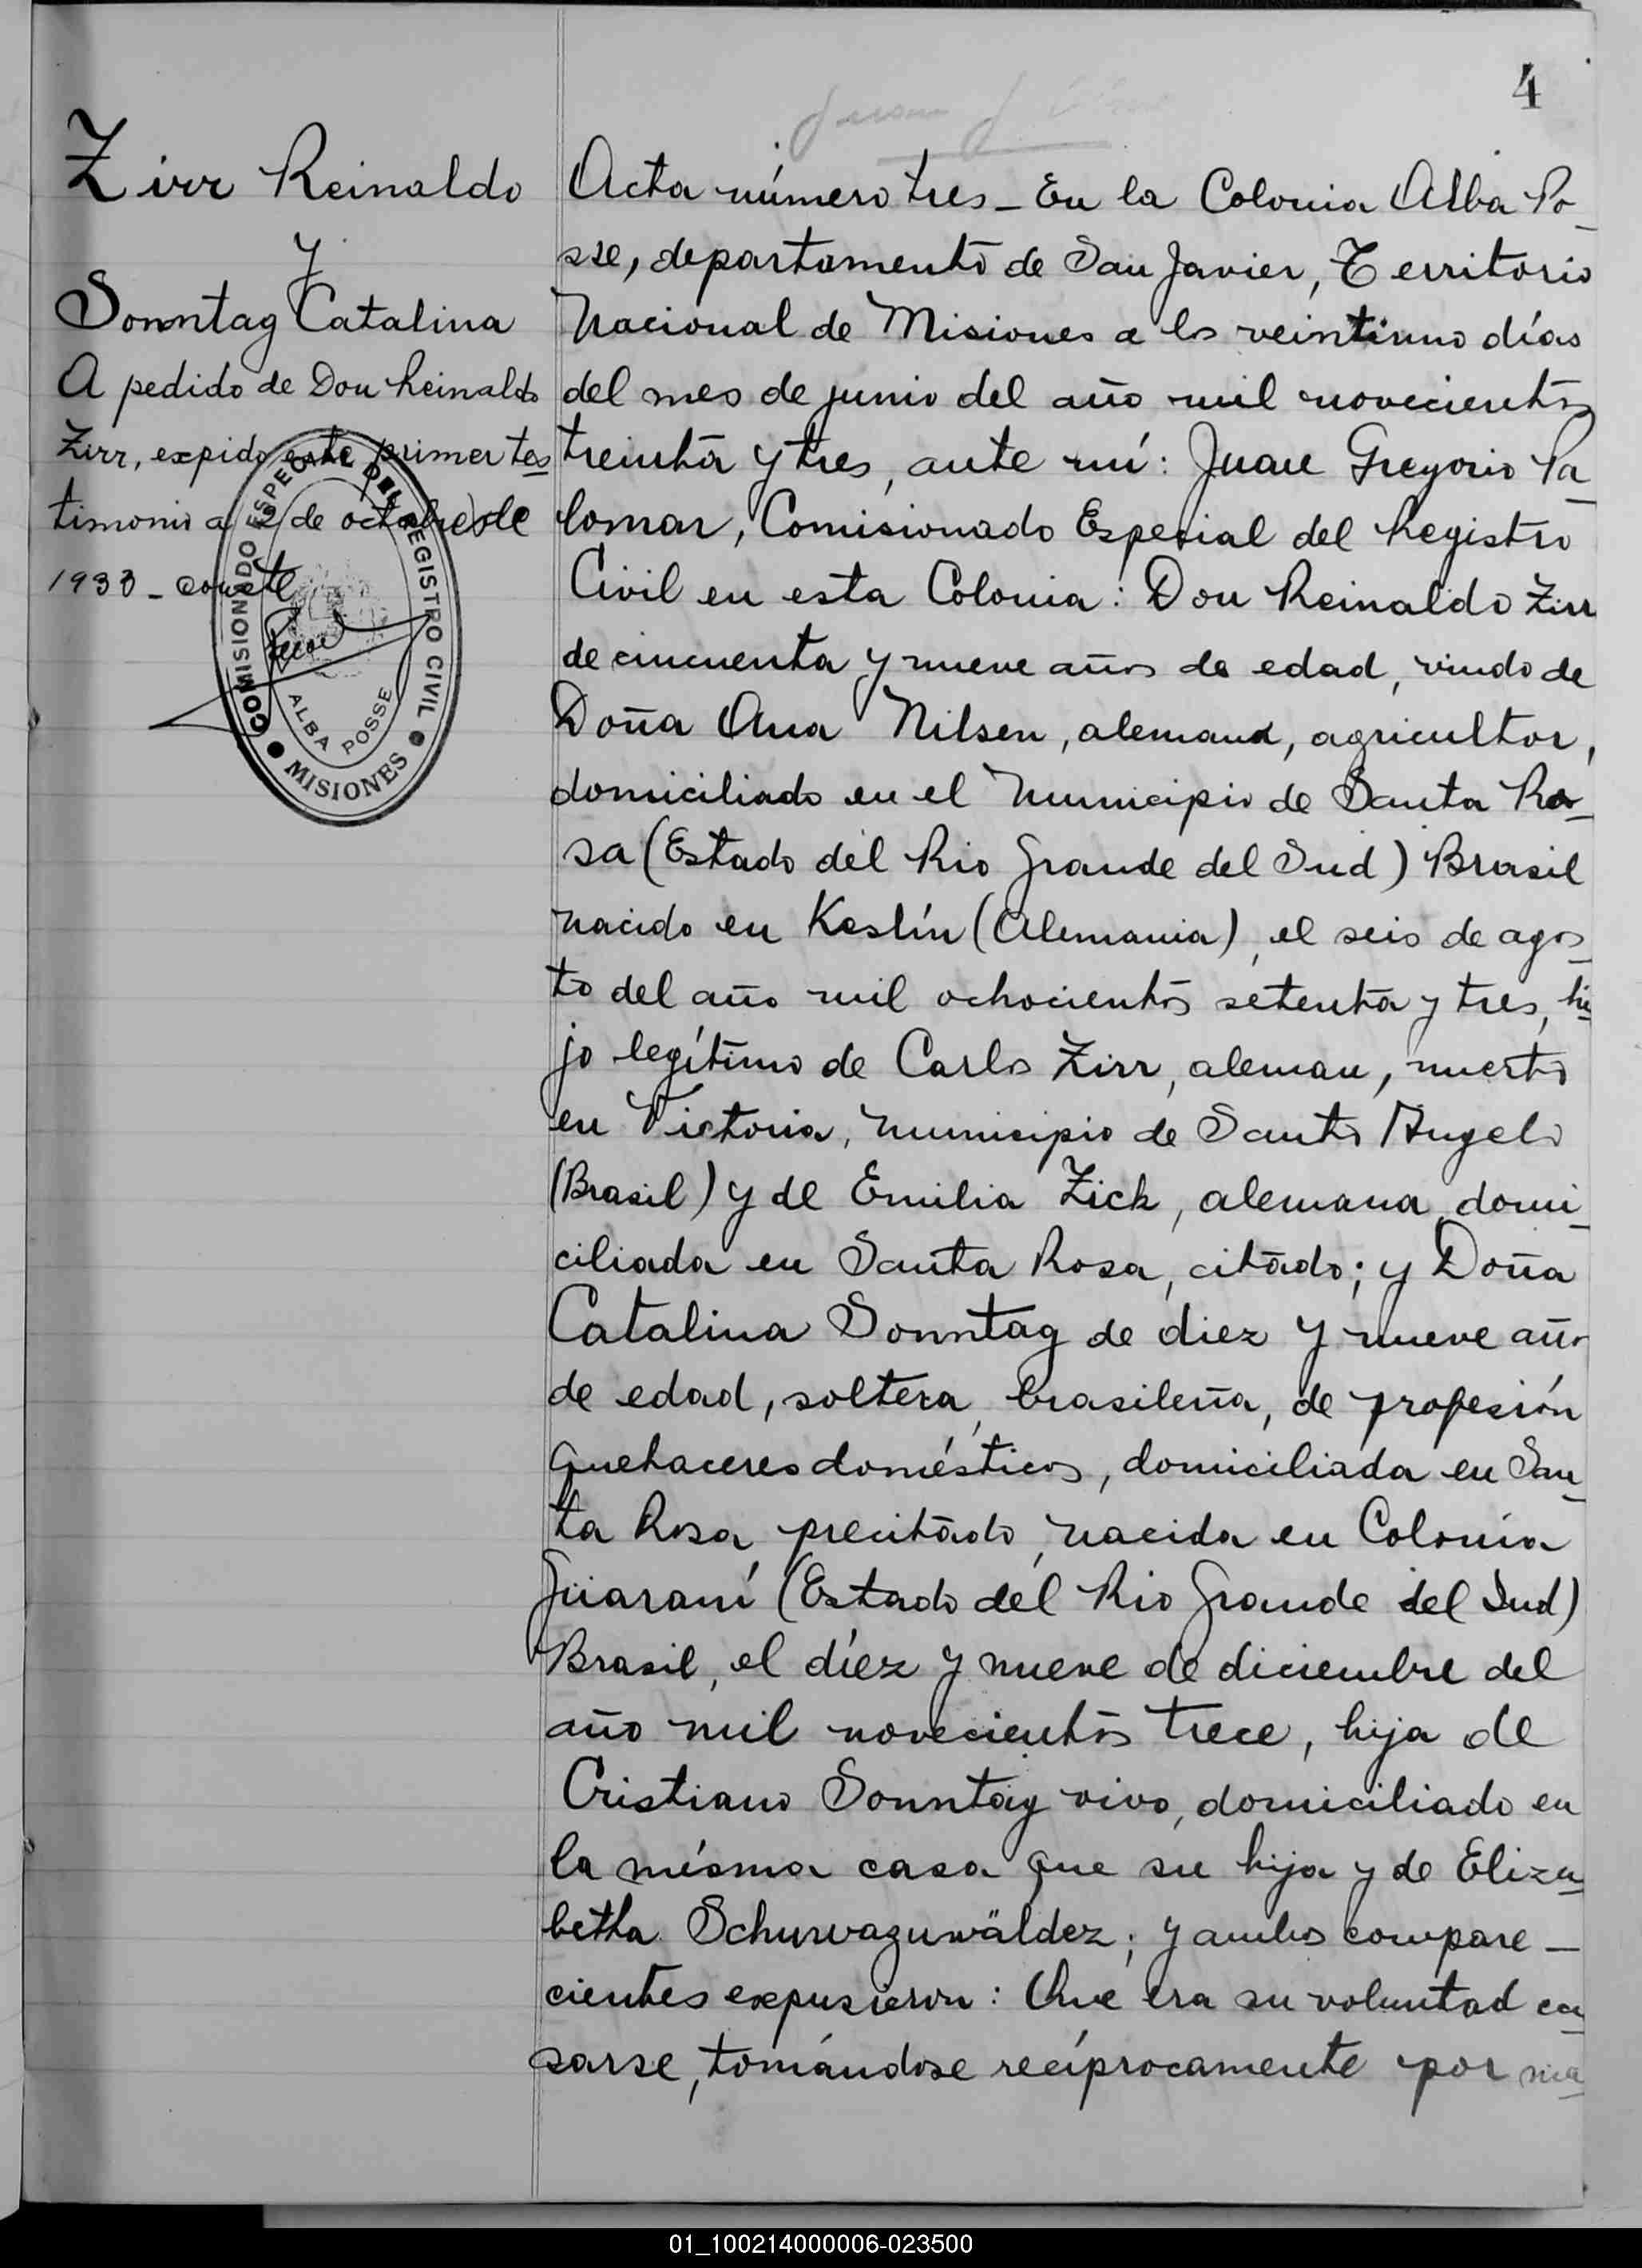 4
Zirr Reinaldo
y
Sonntag Catalina
A pedido de Don Reinaldo
Zirr, expido este primer tes
timonio a de octubre de
1933 - conste
COMISIONADO ESPECIAL DEL REGISTRO CIVIL
ALBA POSSE
MISIONES
Acta número tres - En la Colonia Alba Po-
sse, departamento de San Javier, Territorio
Nacional de Misiones a los veintiuno días
del mes de junio del año mil novecientos
treinta y tres, ante mí: Juan Gregorio Pa-
lomar, Comisionado Especial del Registro
Civil en esta Colonia: Don Reinaldo Zirr
de cincuenta y nueve años de edad, viudo de
Doña Ana Nilsen, alemana, agricultor,
domiciliado en el Municipio de Santa Ro-
sa (Estado del Rio Grande del Sud) Brasil
nacido en Keslín (Alemania), el seis de agos-
to del año mil ochocientos setenta y tres, hi-
jo legítimo de Carlos Zirr, aleman, muerto
en Victoria, Municipio de Santo Angelo
(Brasil) y de Emilia Zick, alemana, domi-
ciliada en Santa Rosa, citado; y Doña
Catalina Sonntag de diez y nueve años
de edad, soltera, brasileña, de profesión
quehaceres domésticos, domiciliada en San-
ta Rosa, precitado, nacida en Colonia
Güaraní (Estado del Rio Grande del Sud)
Brasil, el diez y nueve de diciembre del
año mil novecientos trece, hija de
Cristiano Sonntag vivo, domiciliado en
la misma casa que su hija y de Eliza-
betha Schurvazuwäldez; y ambos compare-
cientes expusieron: Que era su voluntad ca-
sarse, tomándose recíprocamente por ma-
01_100214000006-023500